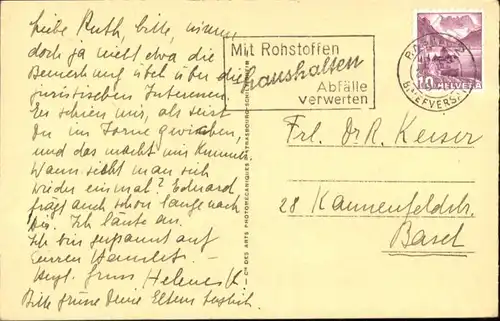 Liebe Ruth, bitte, nimm
doch ja nicht etwa die
Bemerkung übel über die
juristischen Interessen.
Es schien mir, als seist
Du im Zorne gewichen,
und das macht mir Kummer.
Wann sieht man sich
wieder einmal? Eduard
frägt auch schon lange nach
Dir. Ich läute an.
Ich bin gespannt auf
Euren Hamlet. –
Hzgl. Gruss Helene K.
Bitte grüsse Deine Eltern herzlich.
Cie DES ARTS PHOTOMÉCANIQUES STRASBOURG-SCHILTIGHEIM
Mit Rohstoffen
haushalten
Abfälle
verwerten
BASEL
BRIEFVERS.
10 HELVETIA
Frl. Dr. R. Keiser
28 Kannenfeldstr.
Basel